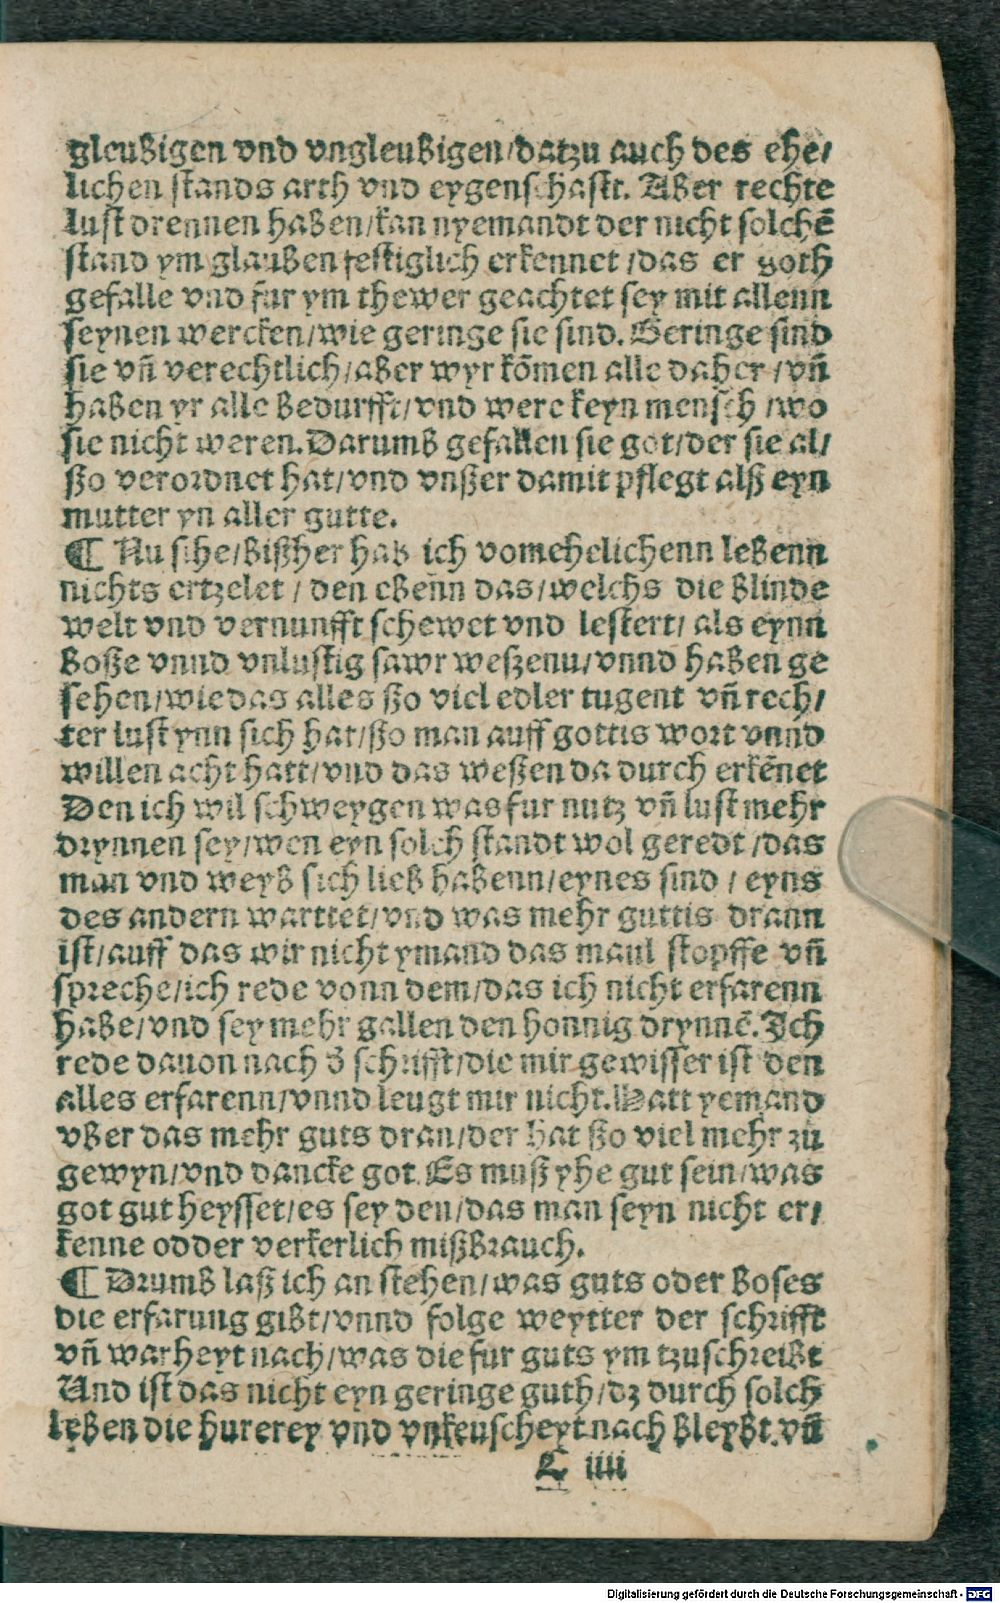 gleubigen vnd vngleubigen/datzu auch des ehe/
lichen stands arth vnd eygenschafft. Aber rechte
lust drennen haben/kan nyemandt der nicht solchē
stand ym glauben festiglich erkennet /das er goth
gefalle vnd fur ym thewer geachtet sey mit allenn
seynen wercken/wie geringe sie sind. Geringe sind
sie vñ verechtlich/aber wyr kōmen alle daher /vñ
haben yr alle bedurfft/vnd were keyn mensch /wo
sie nicht weren. Darumb gefallen sie got/der sie al/
ßo verordnet hat/vnd vnßer damit pflegt alß eyn
mutter yn aller gutte.
¶ Nu sihe/bißher hab ich vom ehelichenn lebenn
nichts ertzelet / den ebenn das/welchs die blinde
welt vnd vernunfft schewet vnd lestert/ als eynn
boße vnnd vnlustig sawr weszenn/vnnd haben ge
sehen/wie das alles ßo viel edler tugent vñ rech/
ter lust ynn sich hat/ßo man auff gottis wort vnnd
willen acht hatt/vnd das weßen da durch erkēnet
Den ich wil schweygen was fur nutz vñ lust mehr
drynnen sey/wen eyn solch standt wol geredt /das
man vnd weyb sich lieb habenn/eynes sind / eyns
des andern warttet/vnd was mehr guttis drann
ist/auff das wir nicht ymand das maul stopffe vñ
spreche/ich rede vonn dem/das ich nicht erfarenn
habe/vnd sey mehr gallen den honnig drynnē. Ich
rede dauon nach ď schrifft/die mir gewisser ist den
alles erfarenn/vnnd leugt mir nicht. Hatt yemand
vber das mehr guts dran/der hat ßo viel mehr zu
gewyn/vnd dancke got. Es muß yhe gut sein/was
got gut heysset/es sey den/das man seyn nicht er/
kenne odder verkerlich mißbrauch.
¶ Drumb laß ich an stehen/was guts oder boses
die erfarung gibt/vnnd folge weytter der schrifft
vñ warheyt nach/was die fur guts ym tzuschreibt
Und ist das nicht eyn geringe guth/dz durch solch
leben die hurerey vnd vnkeuscheyt nach bleybt. vñ
L iiii
Digitalisierung gefördert durch die Deutsche Forschungsgemeinschaft - DFG